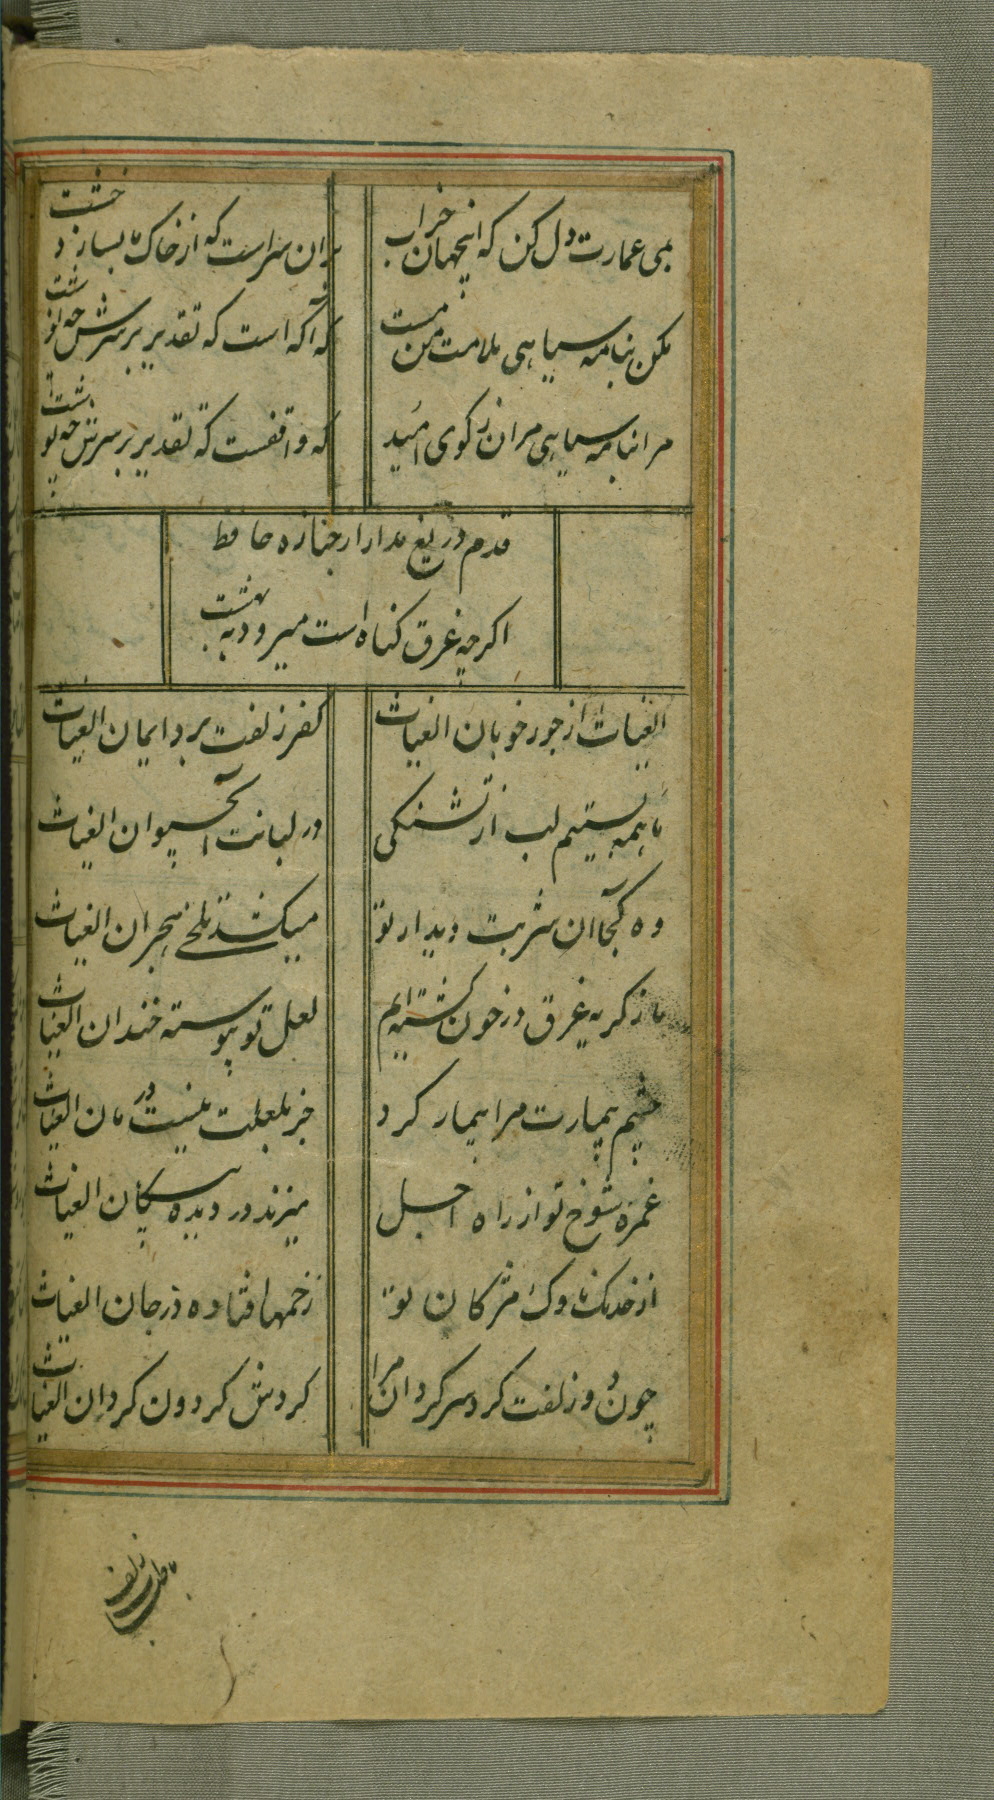 بمی عمارت دل کن که اینجهان خراب
بران سراست که از خاک ما بسازد خشت
مکن بنامه سیاهی ملامت من مست
که آگه است که تقدیر بر سرش چه نوشت
مرا بنامه سیاهی مران ز کوی امید
که واقفست که تقدیر بر سرش چه نوشت
قدم دریغ مدار از جنازه حافظ
اکرچه غرق کناه است میرود به بهشت
الغیاث از جور خوبان الغیاث
کفر زلفت برد ایمان الغیاث
ما همه بستیم لب از تشنکی
در لبانت آبحیوان الغیاث
وه کجا آن شربت دیدار تو
میکشد تلخی هجران الغیاث
ما ز کریه غرق در خون کشته ایم
لعل تو پیوسته خندان الغیاث
چشم بیمارت مرا بیمار کرد
جز بلعلت نیست درمان الغیاث
غمزه شوخ تو از راه اجل
میزند در دیده پیکان الغیاث
از خدنک ناوک مژکان تو
زخمها افتاده در جان الغیاث
چون دو زلفت کرد سرکردان مرا
کردش کردون کردان الغیاث